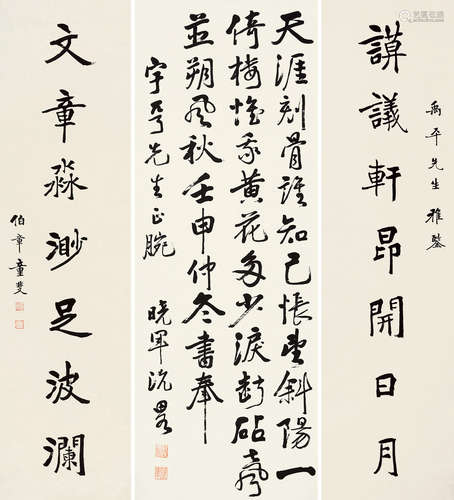 謨議軒昂開日月
禹平先生雅鑒
天涯刻骨誰知己悵望斜陽一
倚樓惟我黃花多少淚斷砧聲
並朔風秋壬申仲冬書奉
宇亨先生正腕 曉軍沈
文章淼渺足波瀾
伯章童斐